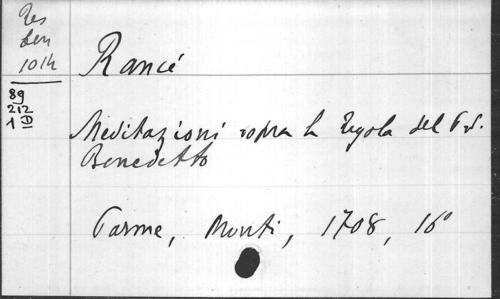 Res
Ben
10th
Rancé
89
212
1 D
Meditazioni sopra la Regola del P. S.
Benedetto
Parme, Monti, 1708, 16°